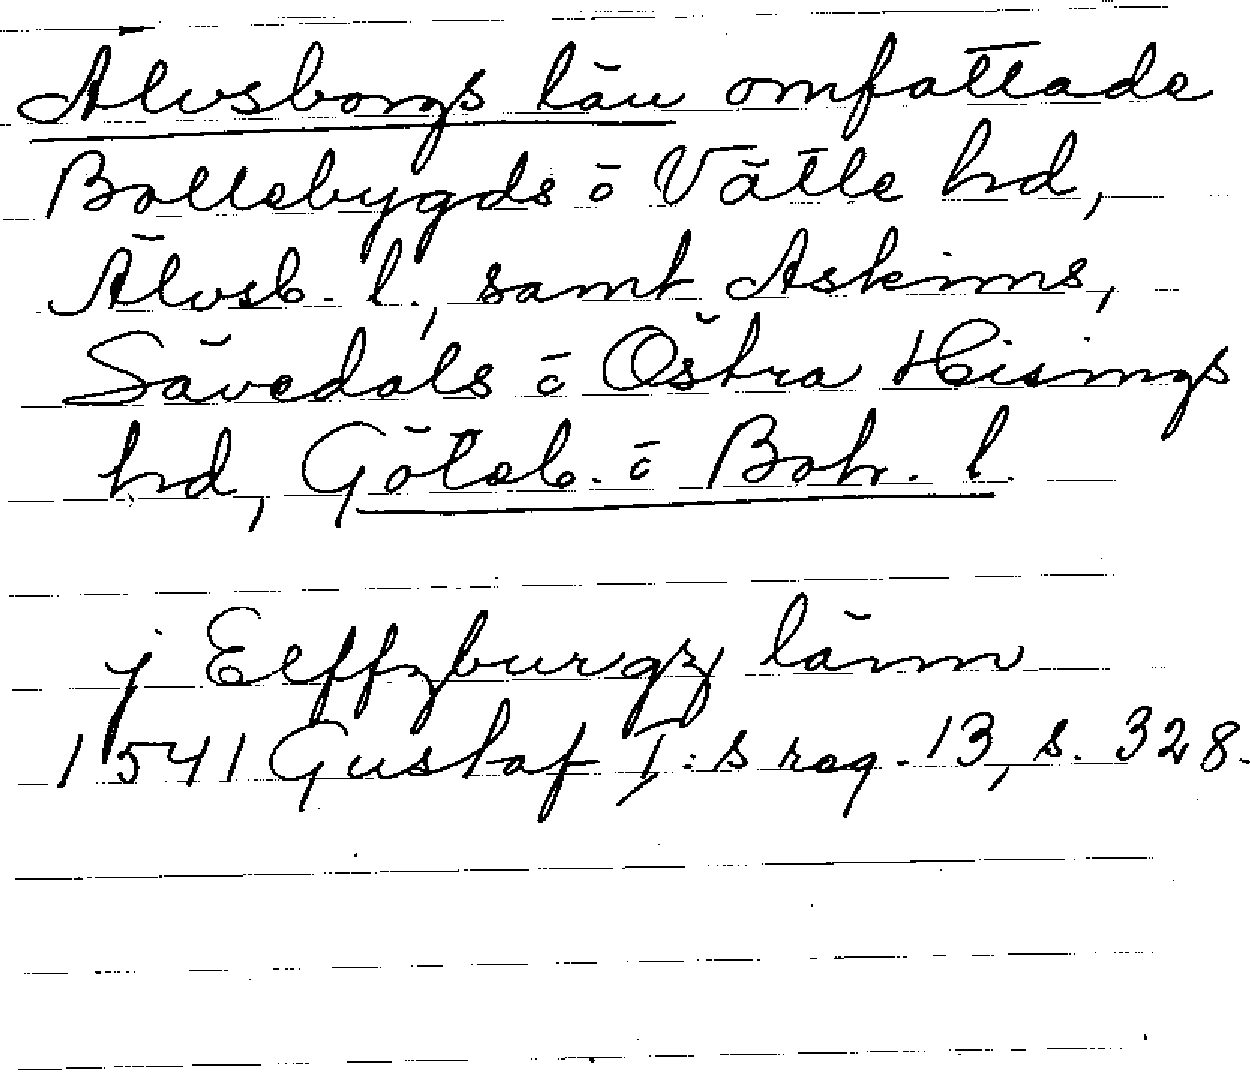 Älvsborgs län omfattade
Bollebygds o Vätle hd,
Älvsb. l., samt Askims,
Sävedals o Östra Hisings
hd, Göteb. o Boh. l.
j Elffzburgz länn
1541 Gustaf I:s reg. 13, s. 328.